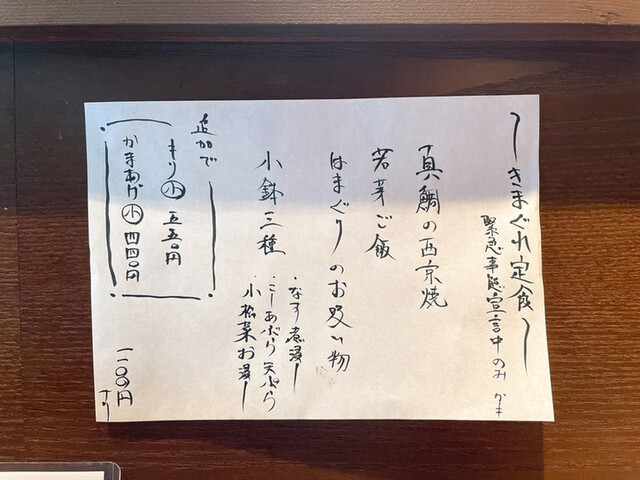 〜きまぐれ定食〜
緊急事態宣言中のみ
真鯛の西京焼
若芽ご飯
はまぐりのお吸い物
小鉢三種
・なす煮浸し
・こしあぶら天ぷら
・小松菜お浸し
追加で
もり小 五五〇円
かまあげ小 四四〇円
一一〇〇円